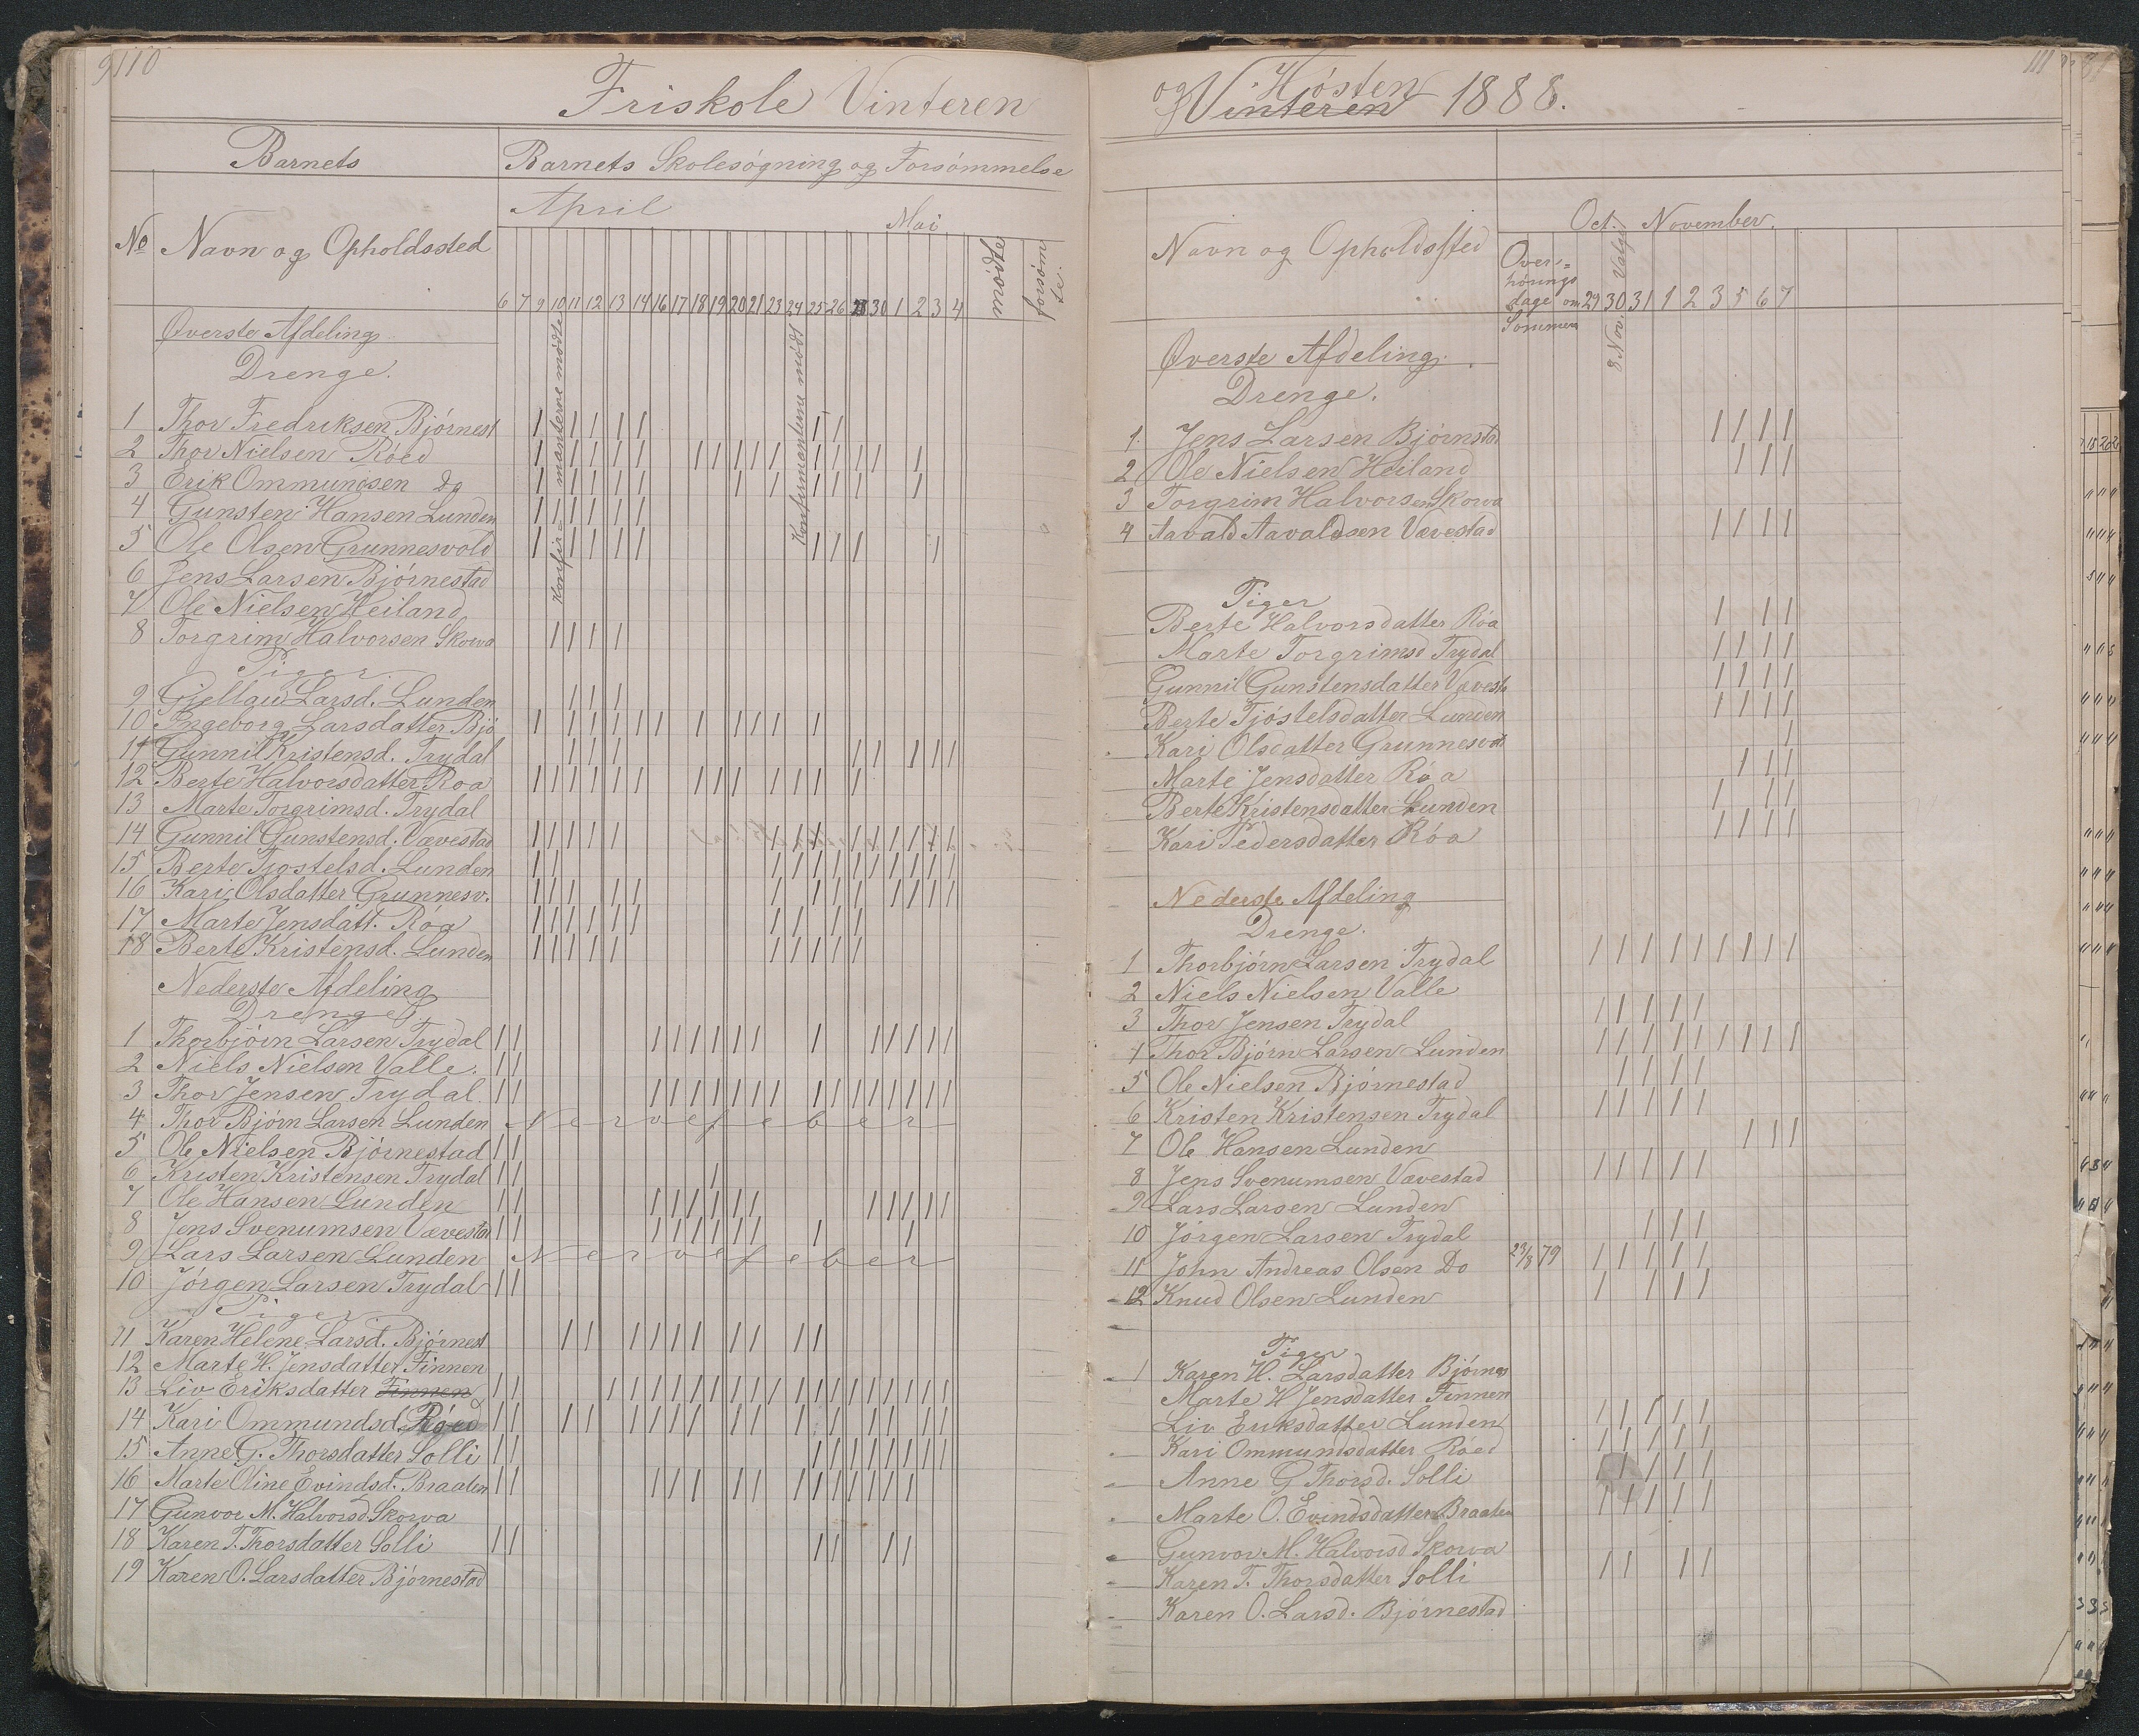 110
Friskole Vinteren
Barnets
Barnets Skolesøgning og Forsømmelse
April
Mai
No
Navn og Opholdssted
mødte
forsømte.
6 7 9 10 11 12 13 14 16 17 18 19 20 21 23 24 25 26 28 30 1 2 3 4
Konfirmanterne mødte
Konfirmanterne mødt
Øverste Afdeling
Drenge.
1 Thor Fredriksen Bjørnest
2 Thor Nielsen Røed
3 Erik Ommundsen Do
4 Gunsten Hansen Lunden
5 Ole Olsen Grunnesvold
6 Jens Larsen Bjørnestad
7 Ole Nielsen Heiland
8 Torgrim Halvorsen Skorva
Piger
9 Gjellau Larsd. Lunden
10 Ingeborg Larsdatter Bjø
11 Gunnil Kristensd. Trydal
12 Berte Halvorsdatter Roa
13 Marte Torgrimsd. Trydal
14 Gunnil Gunstensd. Vævestad
15 Berte Tjostelsd. Lunden
16 Kari Olsdatter Grunnesv.
17 Marte Jensdatt. Røa
18 Berte Kristensd. Lunden
Nederste Afdeling
Drenge
1 Thorbjørn Larsen Trydal
2 Niels Nielsen Valle.
3 Thor Jensen Trydal.
4 Thor Bjørn Larsen Lunden Nervefeber
5 Ole Nielsen Bjørnestad
6 Kristen Kristensen Trydal
7 Ole Hansen Lunden
8 Jens Svenumsen Vævestad
9 Lars Larsen Lunden Nervefeber
10 Jørgen Larsen Trydal
Piger
11 Karen Helene Larsd. Bjørnest
12 Marte H. Jensdatter Finnen
13 Liv Eriksdatter Finnen
14 Kari Ommundsd. Røed
15 Anne G. Thorsdatter Solli
16 Marte Oline Evindsd. Braaten
17 Gunvor M. Halvorsd. Skorva
18 Karen T. Thorsdatter Solli
19 Karen O. Larsdatter Bjørnestad
111
og Høsten
Vinteren 1888.
Oct. November.
Navn og Opholdssted
Overhøringsdage om Sommeren
29 30 31 1 2 3 5 6 7
8 Nov. Valg
Øverste Afdeling.
Drenge.
1. Jens Larsen Bjørnstad
2 Ole Nielsen Heiland
3 Torgrim Halvorsen Skorva
4 Aavald Aavaldsen Vævestad
Piger
Berte Halvorsdatter Røa
Marte Torgrimsd Trydal
Gunnil Gunstensdatter Vævest
Berte Tjøstelsdatter Lunden
Kari Olsdatter Grunnesvol
Marte Jensdatter Røa
Berte Kristensdatter Lunden
Kari Pedersdatter Røa
Nederste Afdeling
Drenge.
1 Thorbjørn Larsen Trydal
2 Niels Nielsen Valle
3 Thor Jensen Trydal
4 Thor Bjørn Larsen Lunden
5 Ole Nielsen Bjørnestad
6 Kristen Kristensen Trydal
7 Ole Hansen Lunden
8 Jens Svenumsen Vævestad
9 Lars Larsen Lunden
10 Jørgen Larsen Trydal
11 John Andreas Olsen Do 23/8 79
12 Knud Olsen Lunden
Piger
1 Karen H. Larsdatter Bjørnes
Marte H Jensdatter Finnen
Liv Eriksdatter Lunden
Kari Ommundsdatter Røed
Anne G Thorsd. Solli
Marte O. Evindsdatter Braaten
Gunvor M. Halvorsd Skorva
Karen T. Thorsdatter Solli
Karen O. Larsd. Bjørnestad